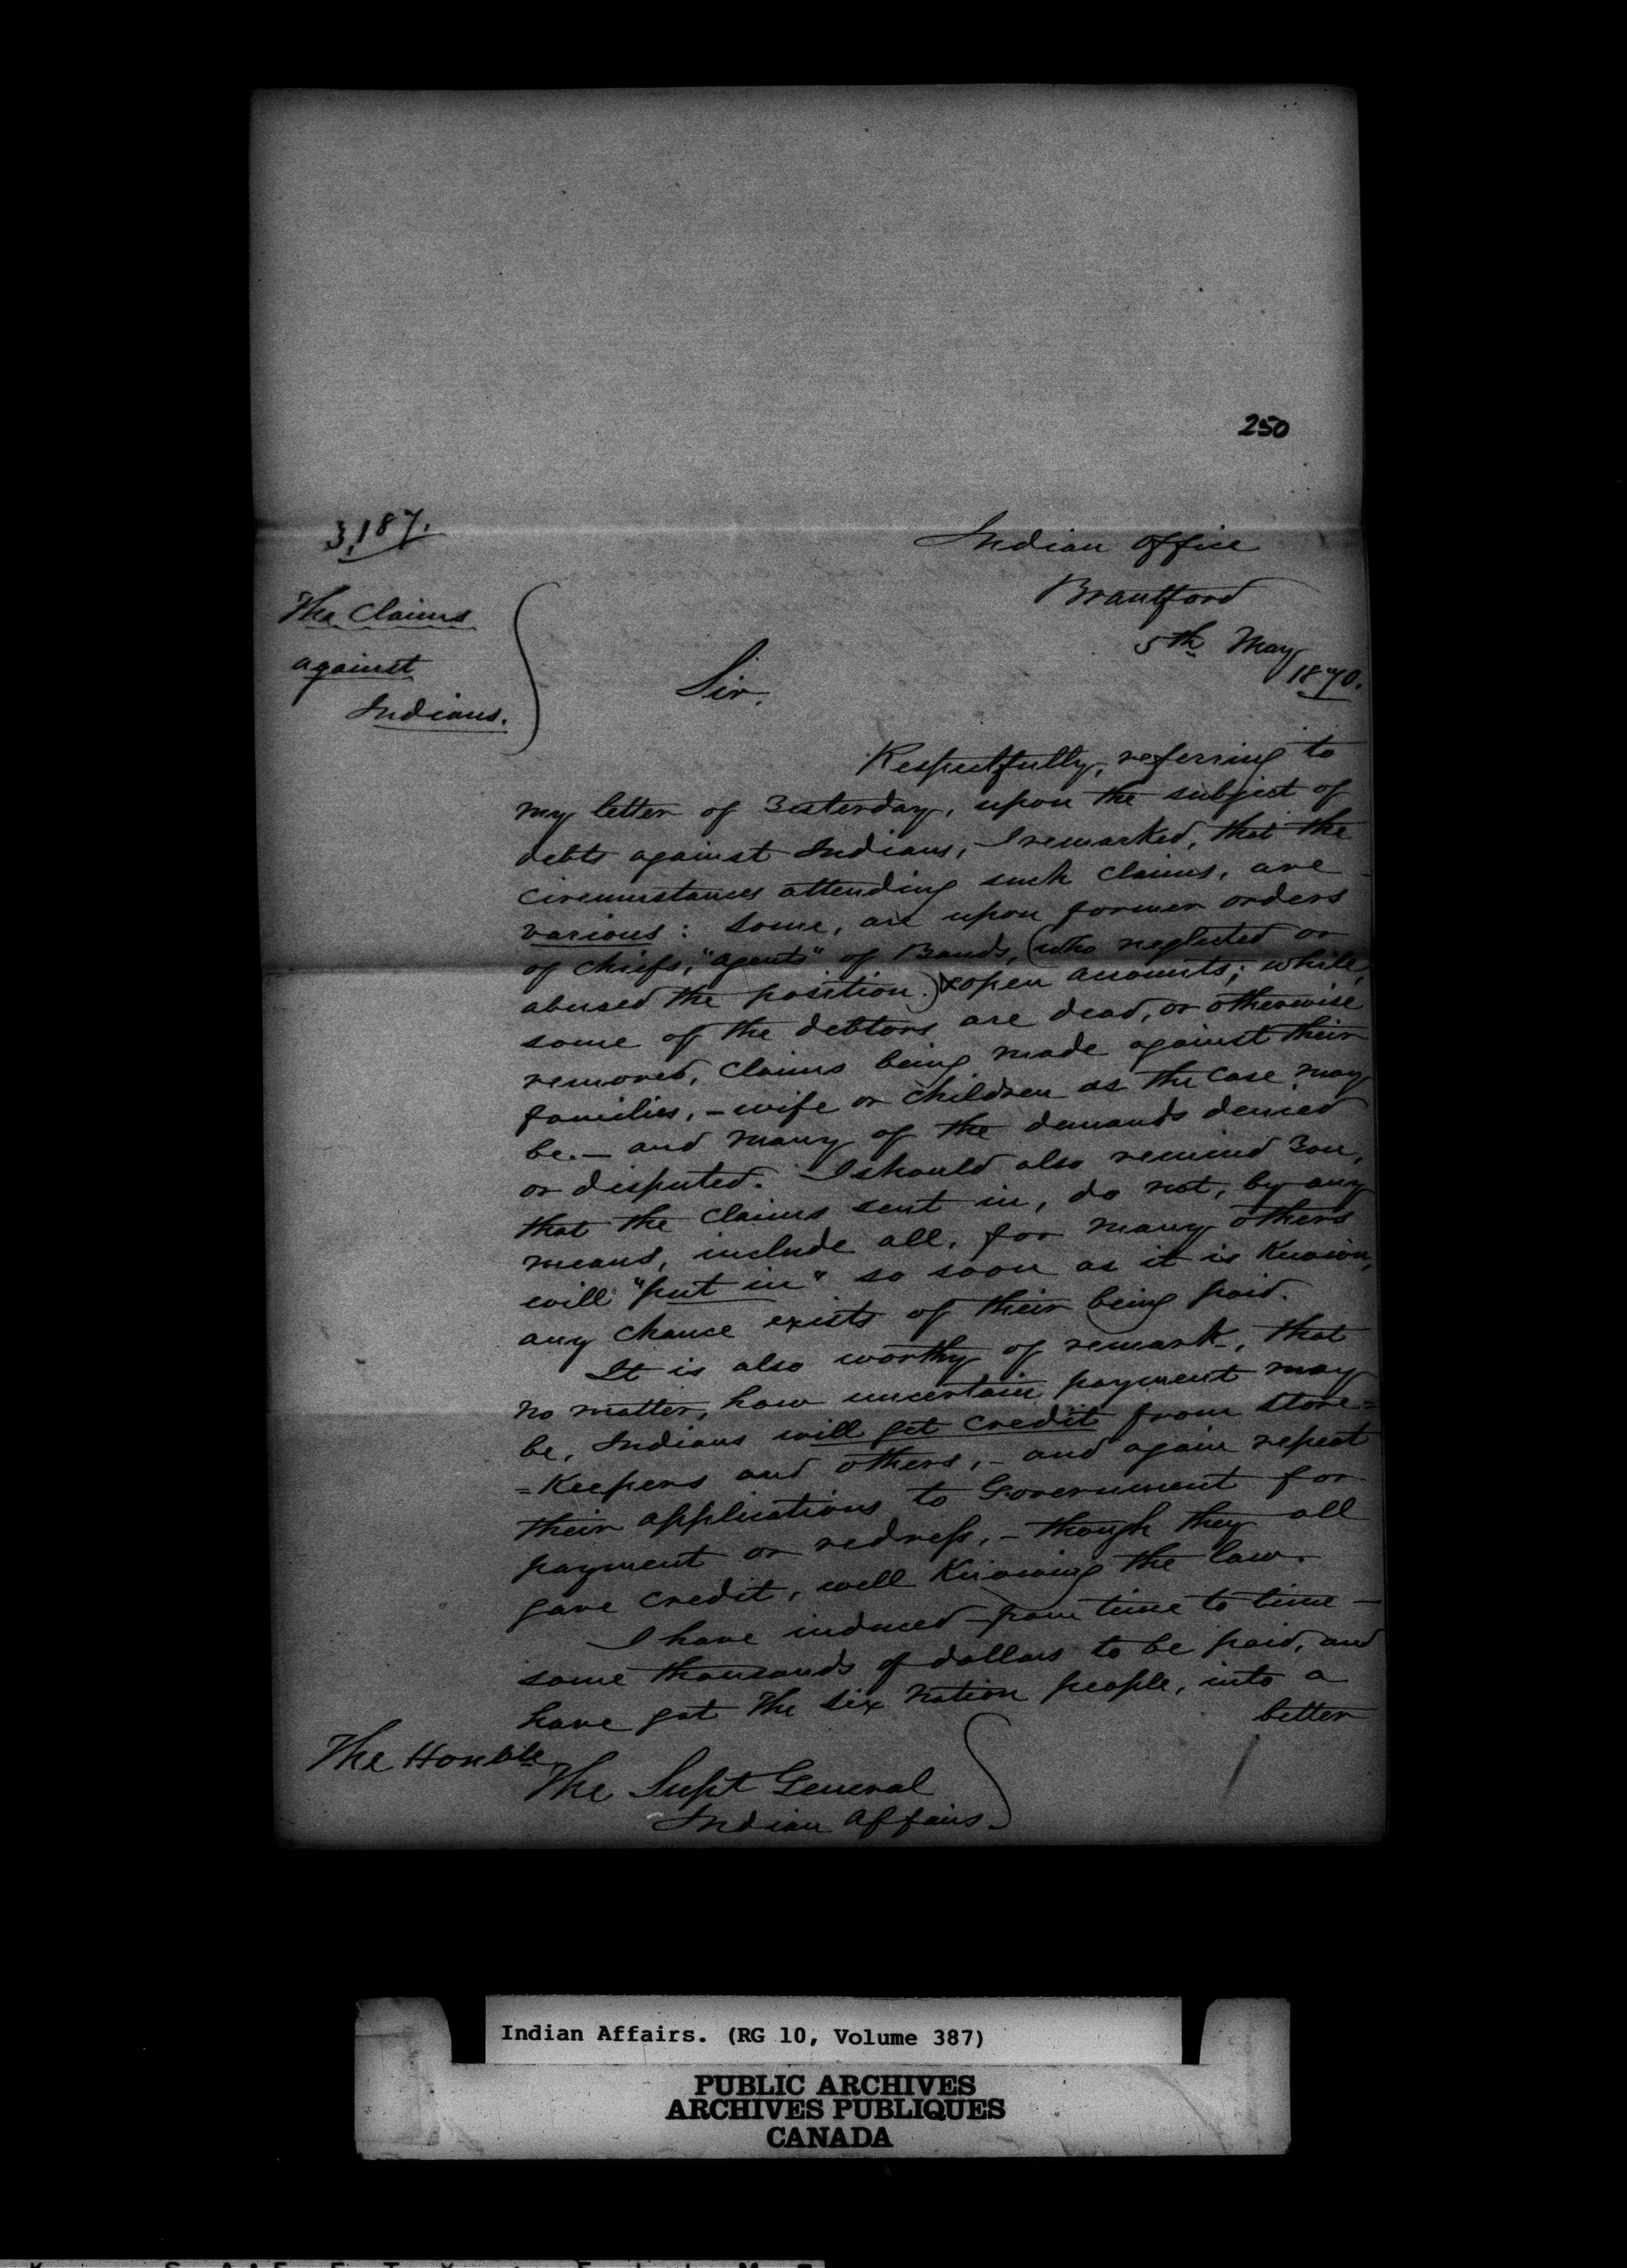 250
3,187.
Indian Office
Brantford
5th May
1870.
The Claims
against
Indians.
Sir,
Respectfully, referring to
my letter of Yesterday, upon the subject of
debts against Indians, I remarked, that the
circumstances attending such claims, are
various: some, are upon former orders
of Chiefs, "agents" of Bands, (who neglected or
abused the position.) & open accounts; while,
some of the debtors are dead, or otherwise
removed, Claims being made against their
families, - wife or children as the case may
be. - and many of the demands denied
or disputed. I should also remind You,
that the claims sent in, do not, by any
means, include all, for many others
will "put in" so soon as it is Known,
any chance exists of their being paid.
It is also worthy of remark, that
no matter, how uncertain payment may
be, Indians will get credit from Store=
=Keepers and others, - and again repeat
their applications to Government for
payment or redress, - though they all
gave credit, well Knowing the law.
I have induced - from time to time -
some thousands of dollars to be paid, and
have got the Six Nation people, into a
better
The Honble
The Supt General
Indian Affairs.
Indian Affairs. (RG 10, Volume 387)
PUBLIC ARCHIVES
ARCHIVES PUBLIQUES
CANADA